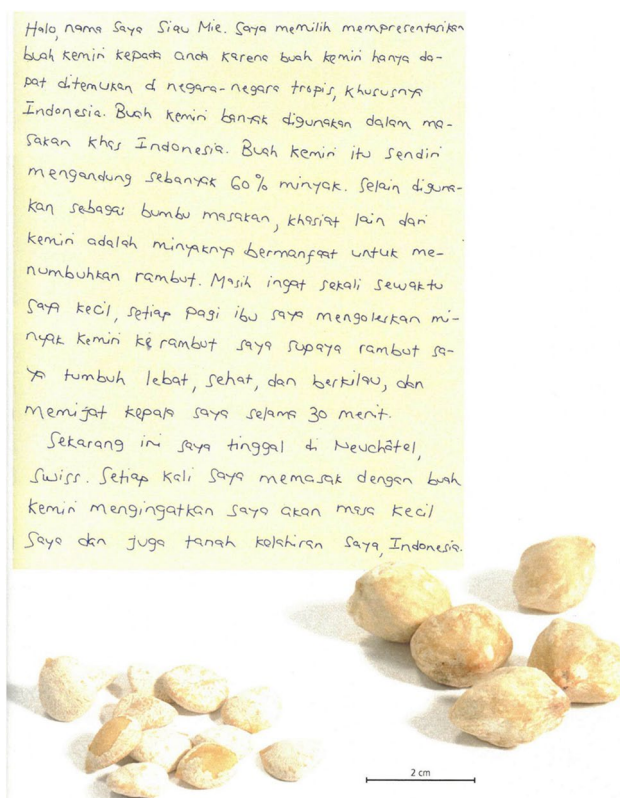 Halo, nama saya Siau Mie. Saya memilih mempresentasikan
buah kemiri kepada anda karena buah kemiri hanya da-
pat ditemukan di negara-negara tropis, khususnya
Indonesia. Buah kemiri banyak digunakan dalam ma-
sakan khas Indonesia. Buah kemiri itu sendiri
mengandung sebanyak 60% minyak. Selain diguna-
kan sebagai bumbu masakan, khasiat lain dari
kemiri adalah minyaknya bermanfaat untuk me-
numbuhkan rambut. Masih ingat sekali sewaktu
saya kecil, setiap pagi ibu saya mengoleskan mi-
nyak kemiri ke rambut saya supaya rambut sa-
ya tumbuh lebat, sehat, dan berkilau, dan
memijat kepala saya selama 30 menit.
Sekarang ini saya tinggal di Neuchâtel,
Swiss. Setiap kali saya memasak dengan buah
kemiri mengingatkan saya akan masa kecil
saya dan juga tanah kelahiran saya, Indonesia.
2 cm